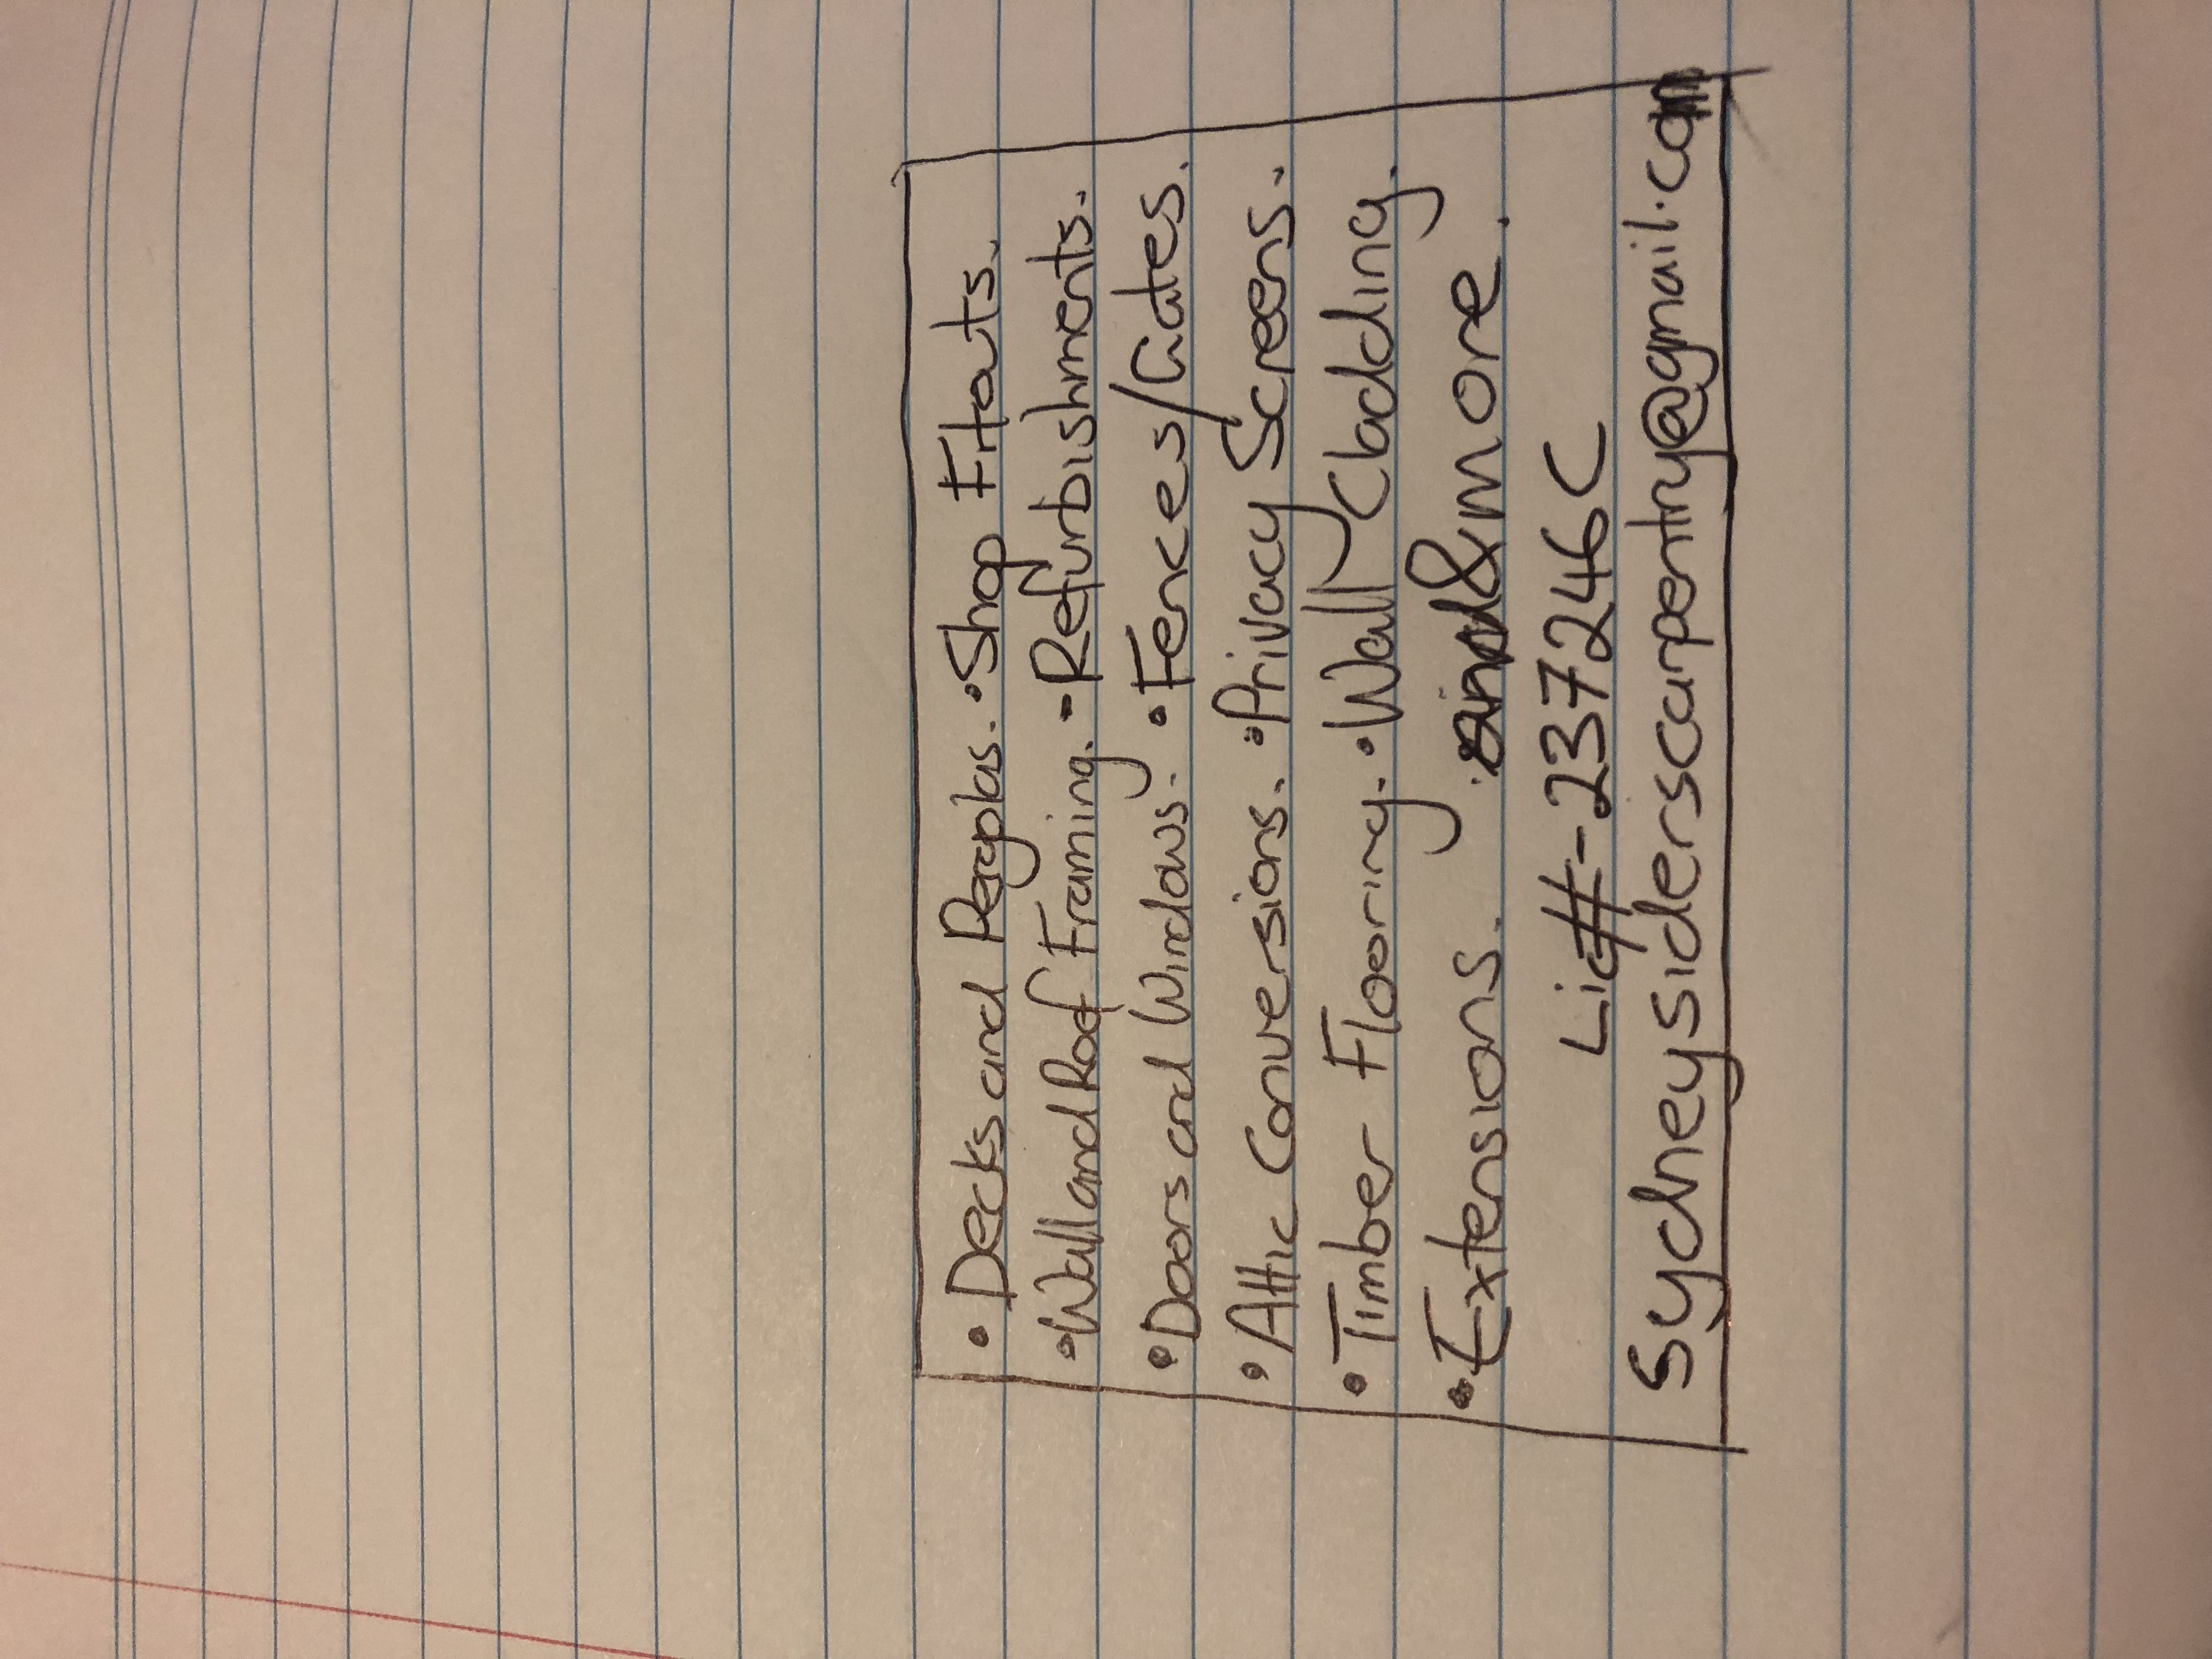 • Decks and Pergolas. • Shop Fitouts.
• Wall and Roof Framing. - Refurbishments.
• Doors and Windows. • Fences/Gates.
• Attic Conversions. • Privacy Screens.
• Timber Flooring. • Wall Cladding.
• Extensions. & more.
Lic#-237246C
Sydneysiderscarpentry@gmail.com